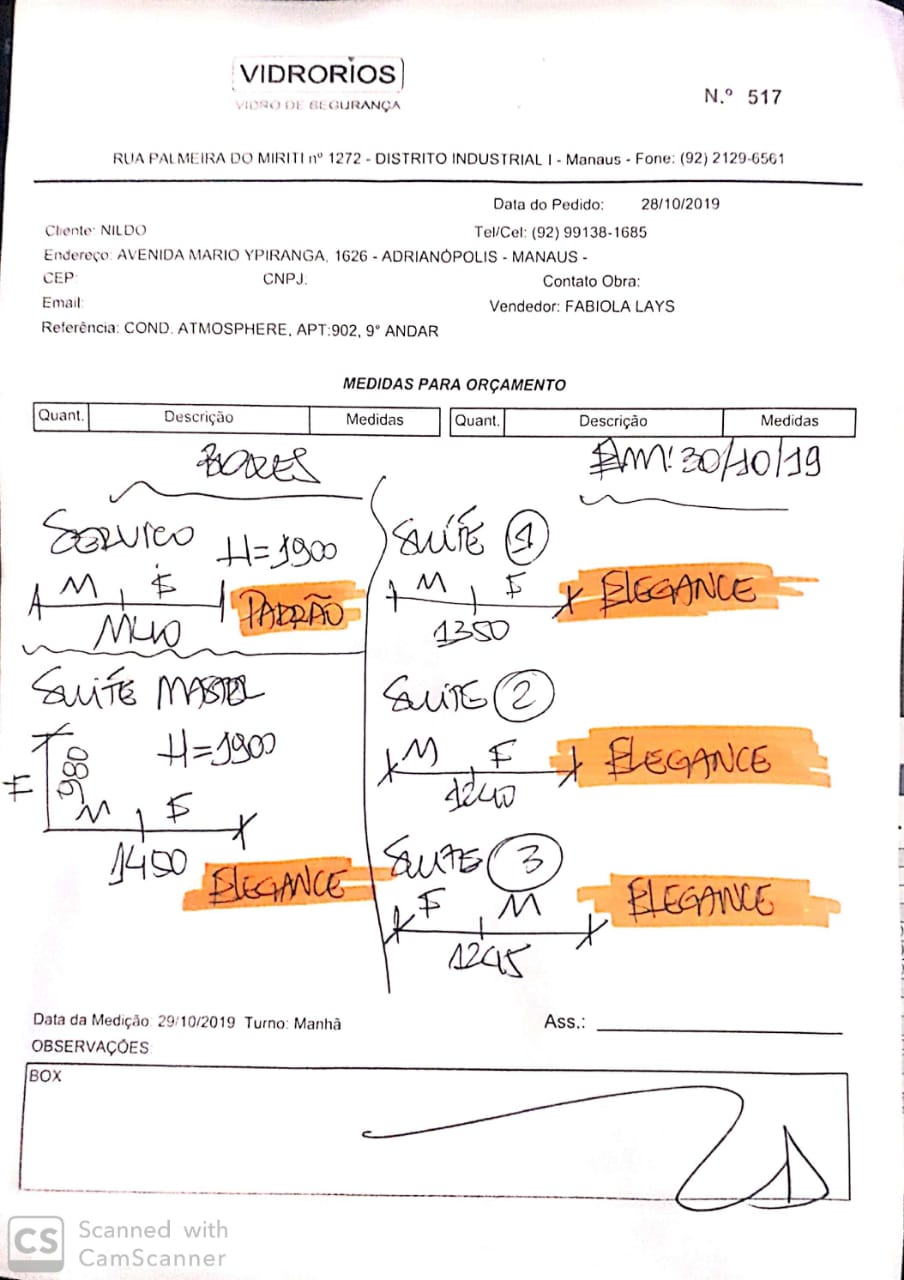 VIDRORIOS
VIDRO DE SEGURANÇA
N.º 517
RUA PALMEIRA DO MIRITI nº 1272 - DISTRITO INDUSTRIAL I - Manaus - Fone: (92) 2129-6561
Data do Pedido: 28/10/2019
Cliente: NILDO
Tel/Cel: (92) 99138-1685
Endereço: AVENIDA MARIO YPIRANGA, 1626 - ADRIANÓPOLIS - MANAUS -
CEP: CNPJ: Contato Obra:
Email:
Vendedor: FABIOLA LAYS
Referência: COND. ATMOSPHERE, APT:902, 9° ANDAR
MEDIDAS PARA ORÇAMENTO
Quant. Descrição Medidas Quant. Descrição Medidas
BOXES
EM: 30/10/19
SERVICO H=1900
M F PADRÃO
SUÍTE MASTER
H=1900
F 980
M F
1450
ELEGANCE
SUÍTE 1
M F ELEGANCE
1350
SUITE 2
M F ELEGANCE
1240
SUITE 3
F M ELEGANCE
1245
Data da Medição: 29/10/2019 Turno: Manhã
Ass.:
OBSERVAÇÕES
BOX
CS Scanned with
CamScanner